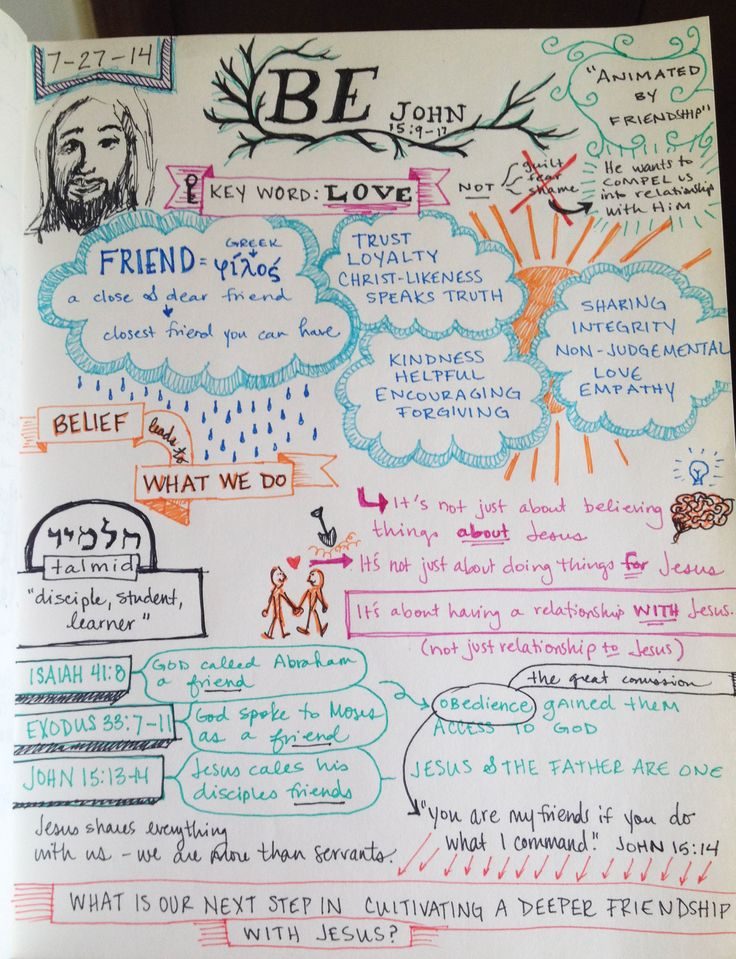 7-27-14
BE
JOHN
15:9-17
"ANIMATED
BY
FRIENDSHIP"
KEY WORD: LOVE
NOT
guilt
fear
shame
He wants to
COMPEL US
into relationship
with Him
GREEK
FRIEND = φίλος
a close & dear friend
closest friend you can have
TRUST
LOYALTY
CHRIST-LIKENESS
SPEAKS TRUTH
KINDNESS
HELPFUL
ENCOURAGING
FORGIVING
SHARING
INTEGRITY
NON-JUDGEMENTAL
LOVE
EMPATHY
BELIEF
leads to
WHAT WE DO
It's not just about believing
things about Jesus
It's not just about doing things for Jesus
It's about having a relationship WITH Jesus.
(not just relationship to Jesus)
תלמיד
talmid
"disciple, student,
learner"
ISAIAH 41:8
GOD called Abraham
a friend
EXODUS 33:7-11
God spoke to Moses
as a friend
JOHN 15:13-14
Jesus calls his
disciples friends
the great comission
OBedience gained them
ACCESS TO GOD
JESUS & THE FATHER ARE ONE
"you are my friends if you do
what I command." JOHN 15:14
Jesus shares everything
with us - we are more than servants.
WHAT IS OUR NEXT STEP IN CULTIVATING A DEEPER FRIENDSHIP
WITH JESUS?